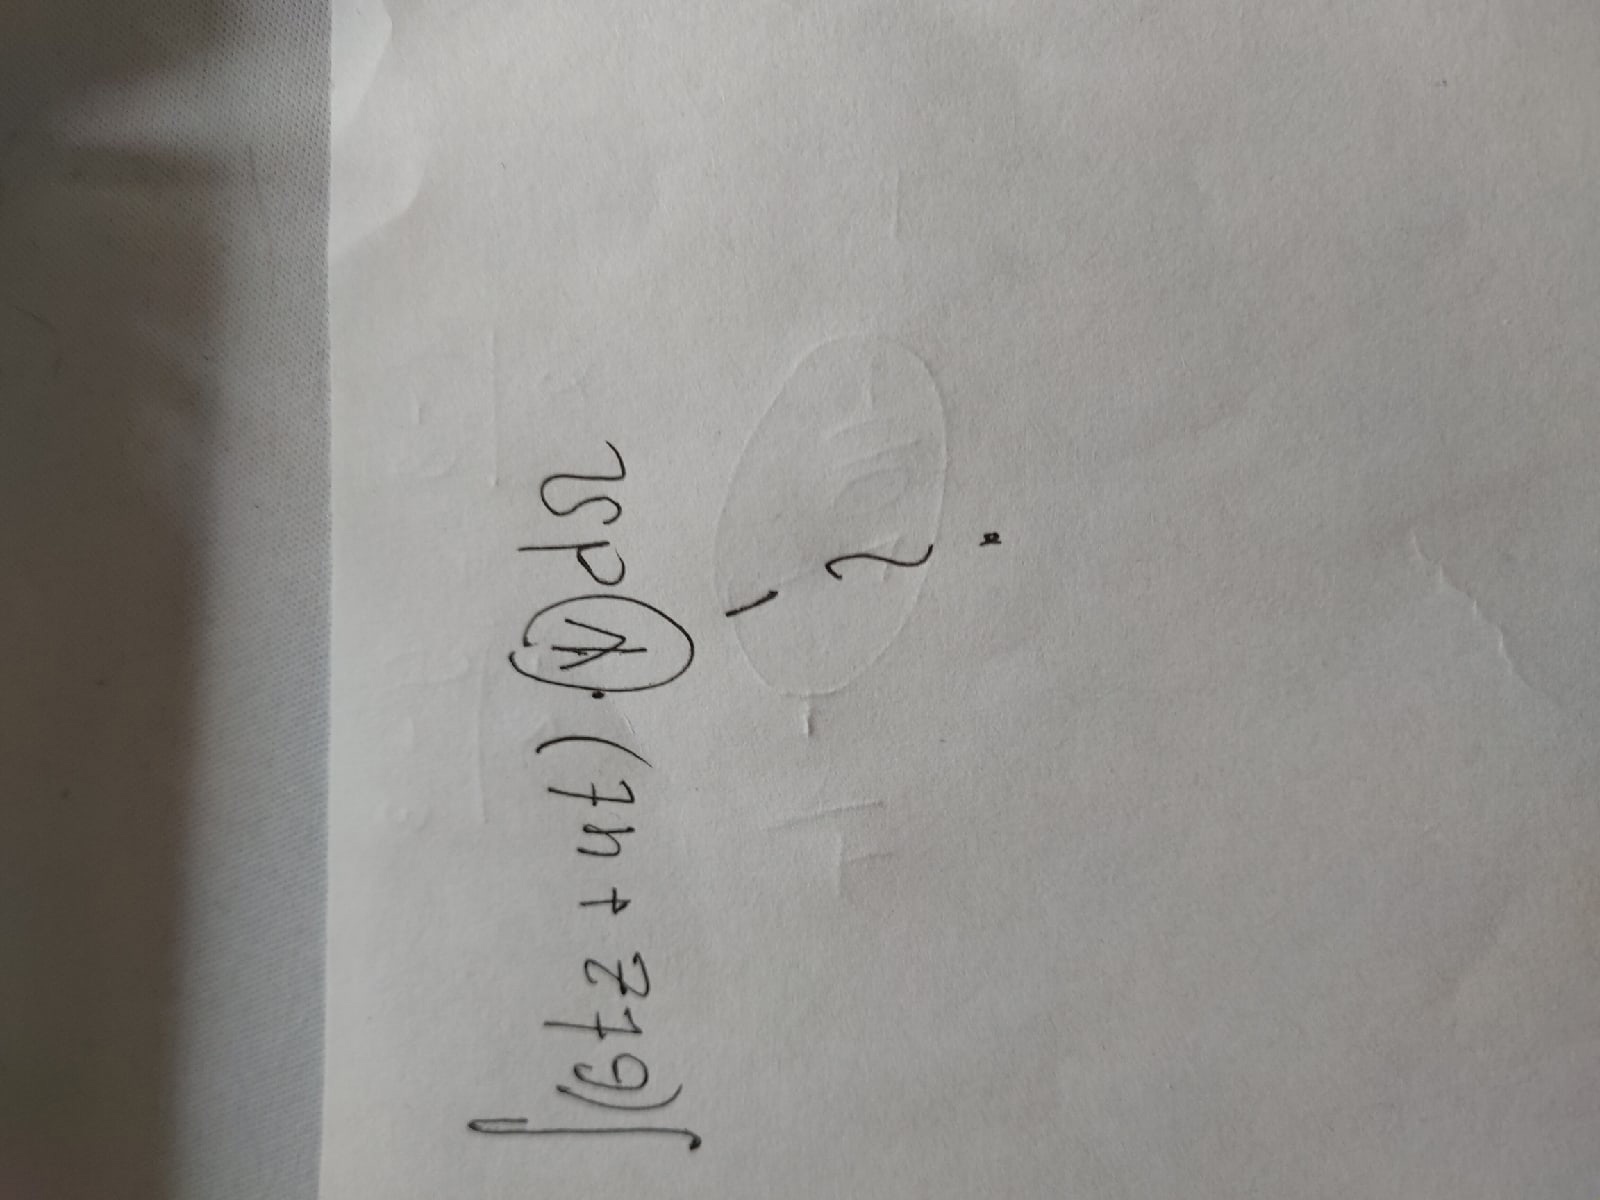 ∫(6tz + 4t) · ψ dΩ
?